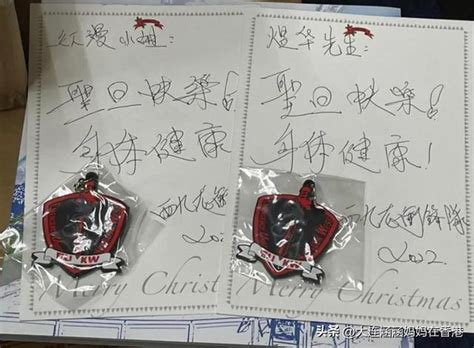 红漫小姐:
聖旦快樂!
身体健康
西九龙
202
Merry Christ
煜华先生:
聖旦快樂!
身体健康!
西九龙衝鋒隊
2022.
Merry Christmas
KW
头条 @大连瀚瀚妈妈在香港